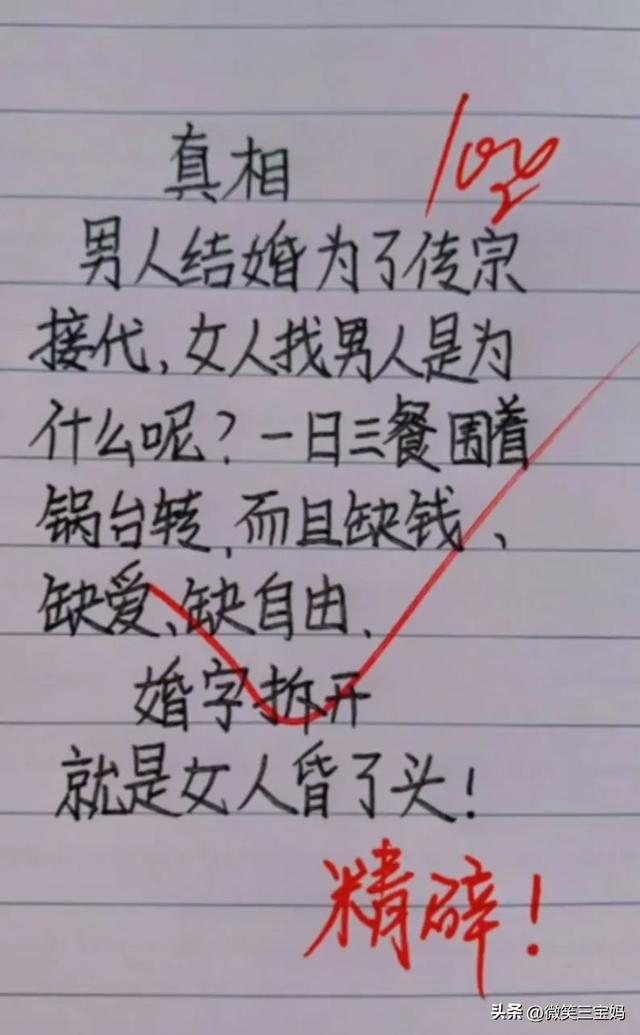 真相
100
男人结婚为了传宗
接代,女人找男人是为
什么呢?一日三餐围着
锅台转,而且缺钱、
缺爱、缺自由、
婚字拆开
就是女人昏了头!
精辟!
头条 @微笑三宝妈